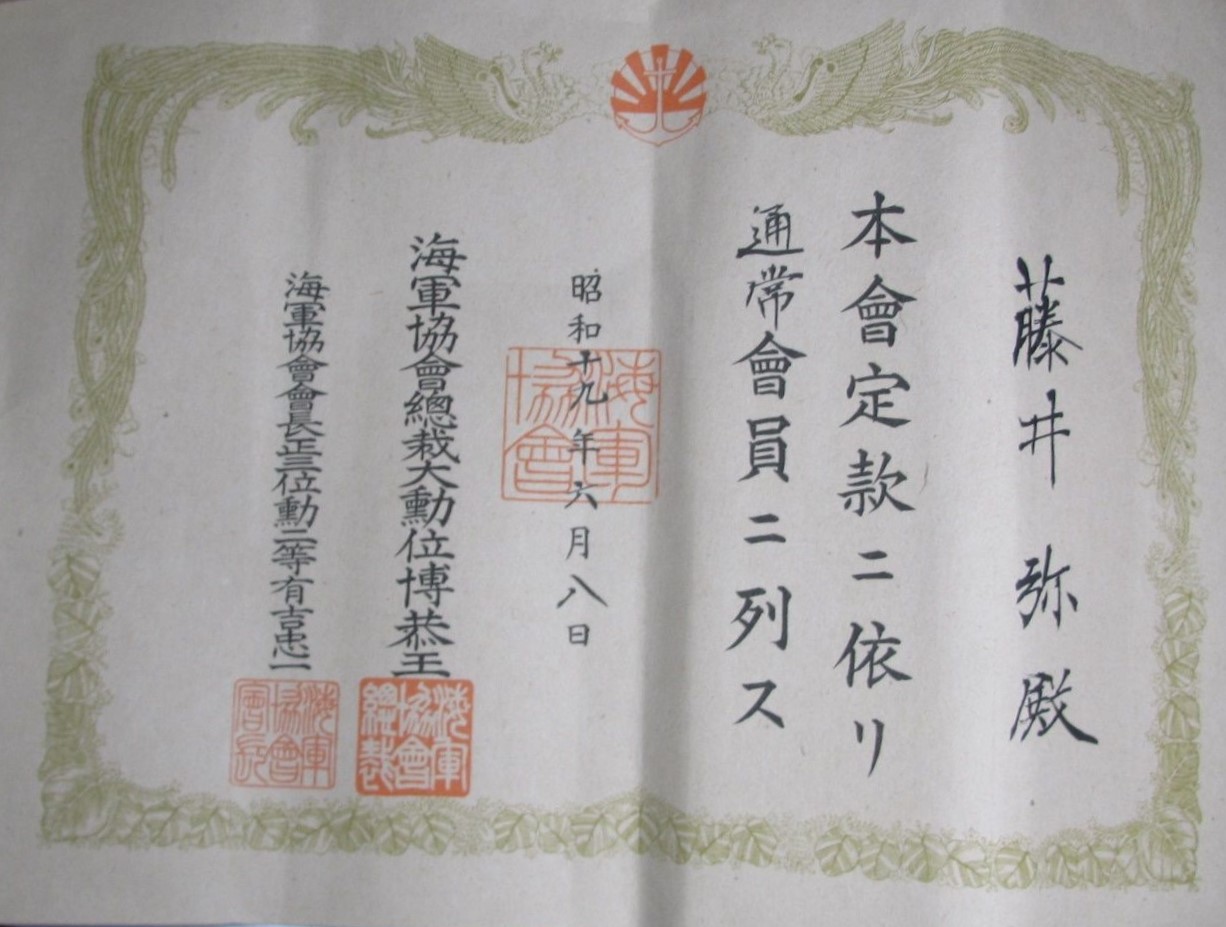 藤井弥殿
本會定款ニ依リ
通常會員ニ列ス
昭和十九年六月八日
海軍協會
海軍協會總裁大勳位博恭王
海軍協會總裁
海軍協會會長正三位勳二等有吉忠一
海軍協會會長